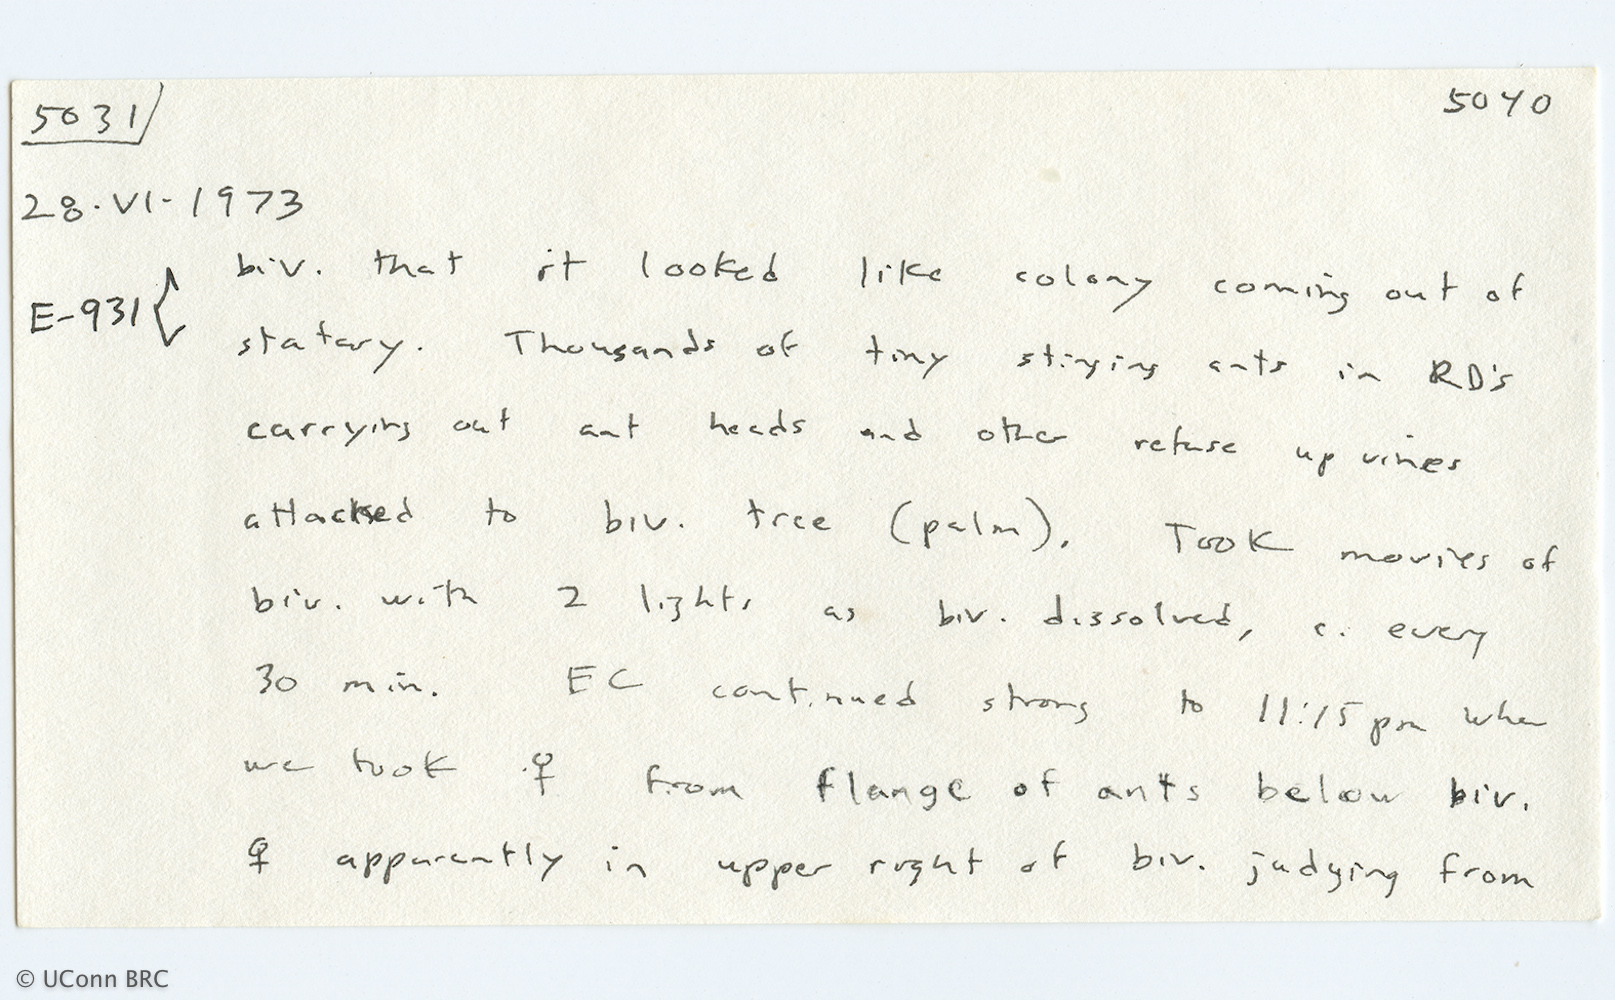 5031
5040
28·VI·1973
E-931 { biv. that it looked like colony coming out of
statary. Thousands of tiny stinging ants in RD's
carrying out ant heads and other refuse up vines
attacked to biv. tree (palm). Took movies of
biv. with 2 lights as biv. dissolved, c. every
30 min. EC continued strong to 11:15 pm when
we took ♀ from flange of ants below biv.
♀ apparently in upper right of biv. judging from
© UConn BRC